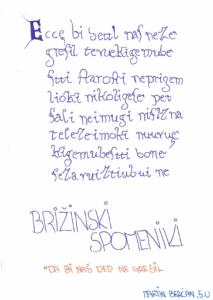 Ecce bi detd naſ neze
greſil teruekigemube
ſiti ſtaroſti neprigem
lioki nikoligeſe pet
ſali neimugi niſlzna
teleze imoki nuuvue
kigemubeſiti bone
ſezavuiztiubui ne
BRIŽINSKI
SPOMENIKI
"DA BI NAŠ DED NE GREŠIL